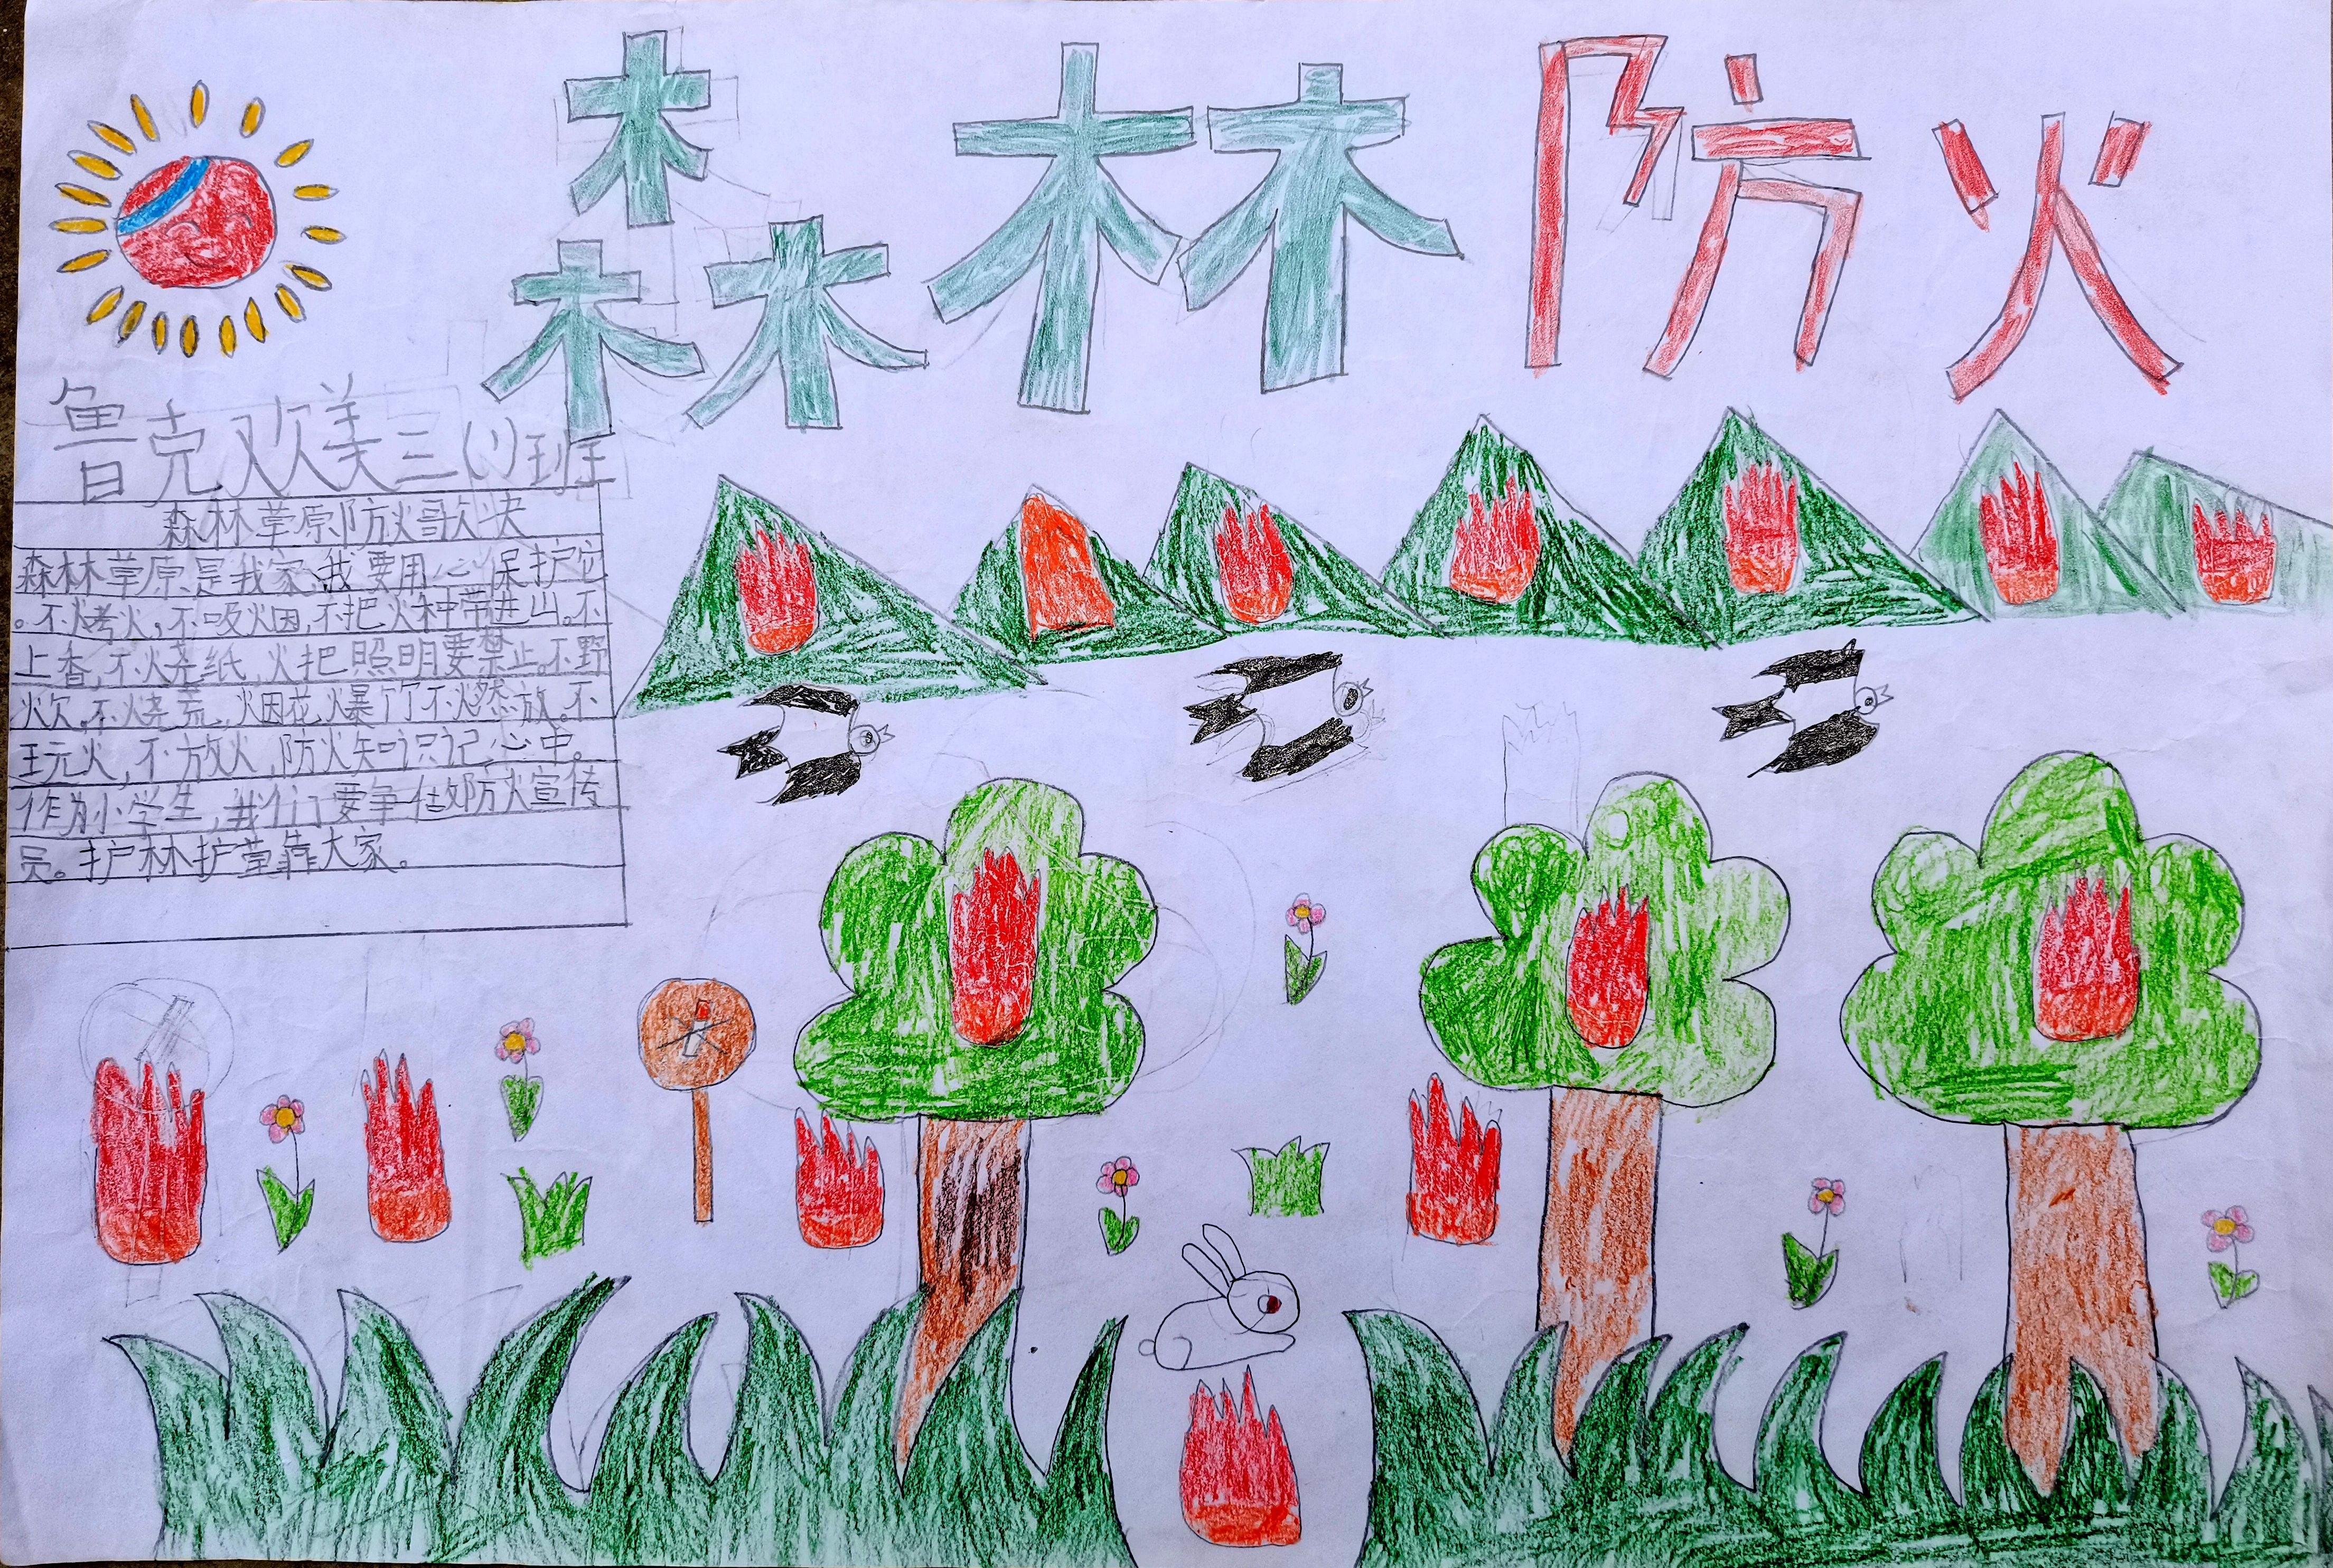 森林防火
鲁克欢美三(1)班
森林草原防火歌诀
森林草原是我家,我要用心保护它
。不烤火,不吸烟,不把火种带进山。不
上香,不烧纸,火把照明要禁止。不野
炊,不烧荒,烟花爆竹不燃放。不
玩火,不放火,防火知识记心中。
作为小学生,我们要争做防火宣传
员。护林护草靠大家。